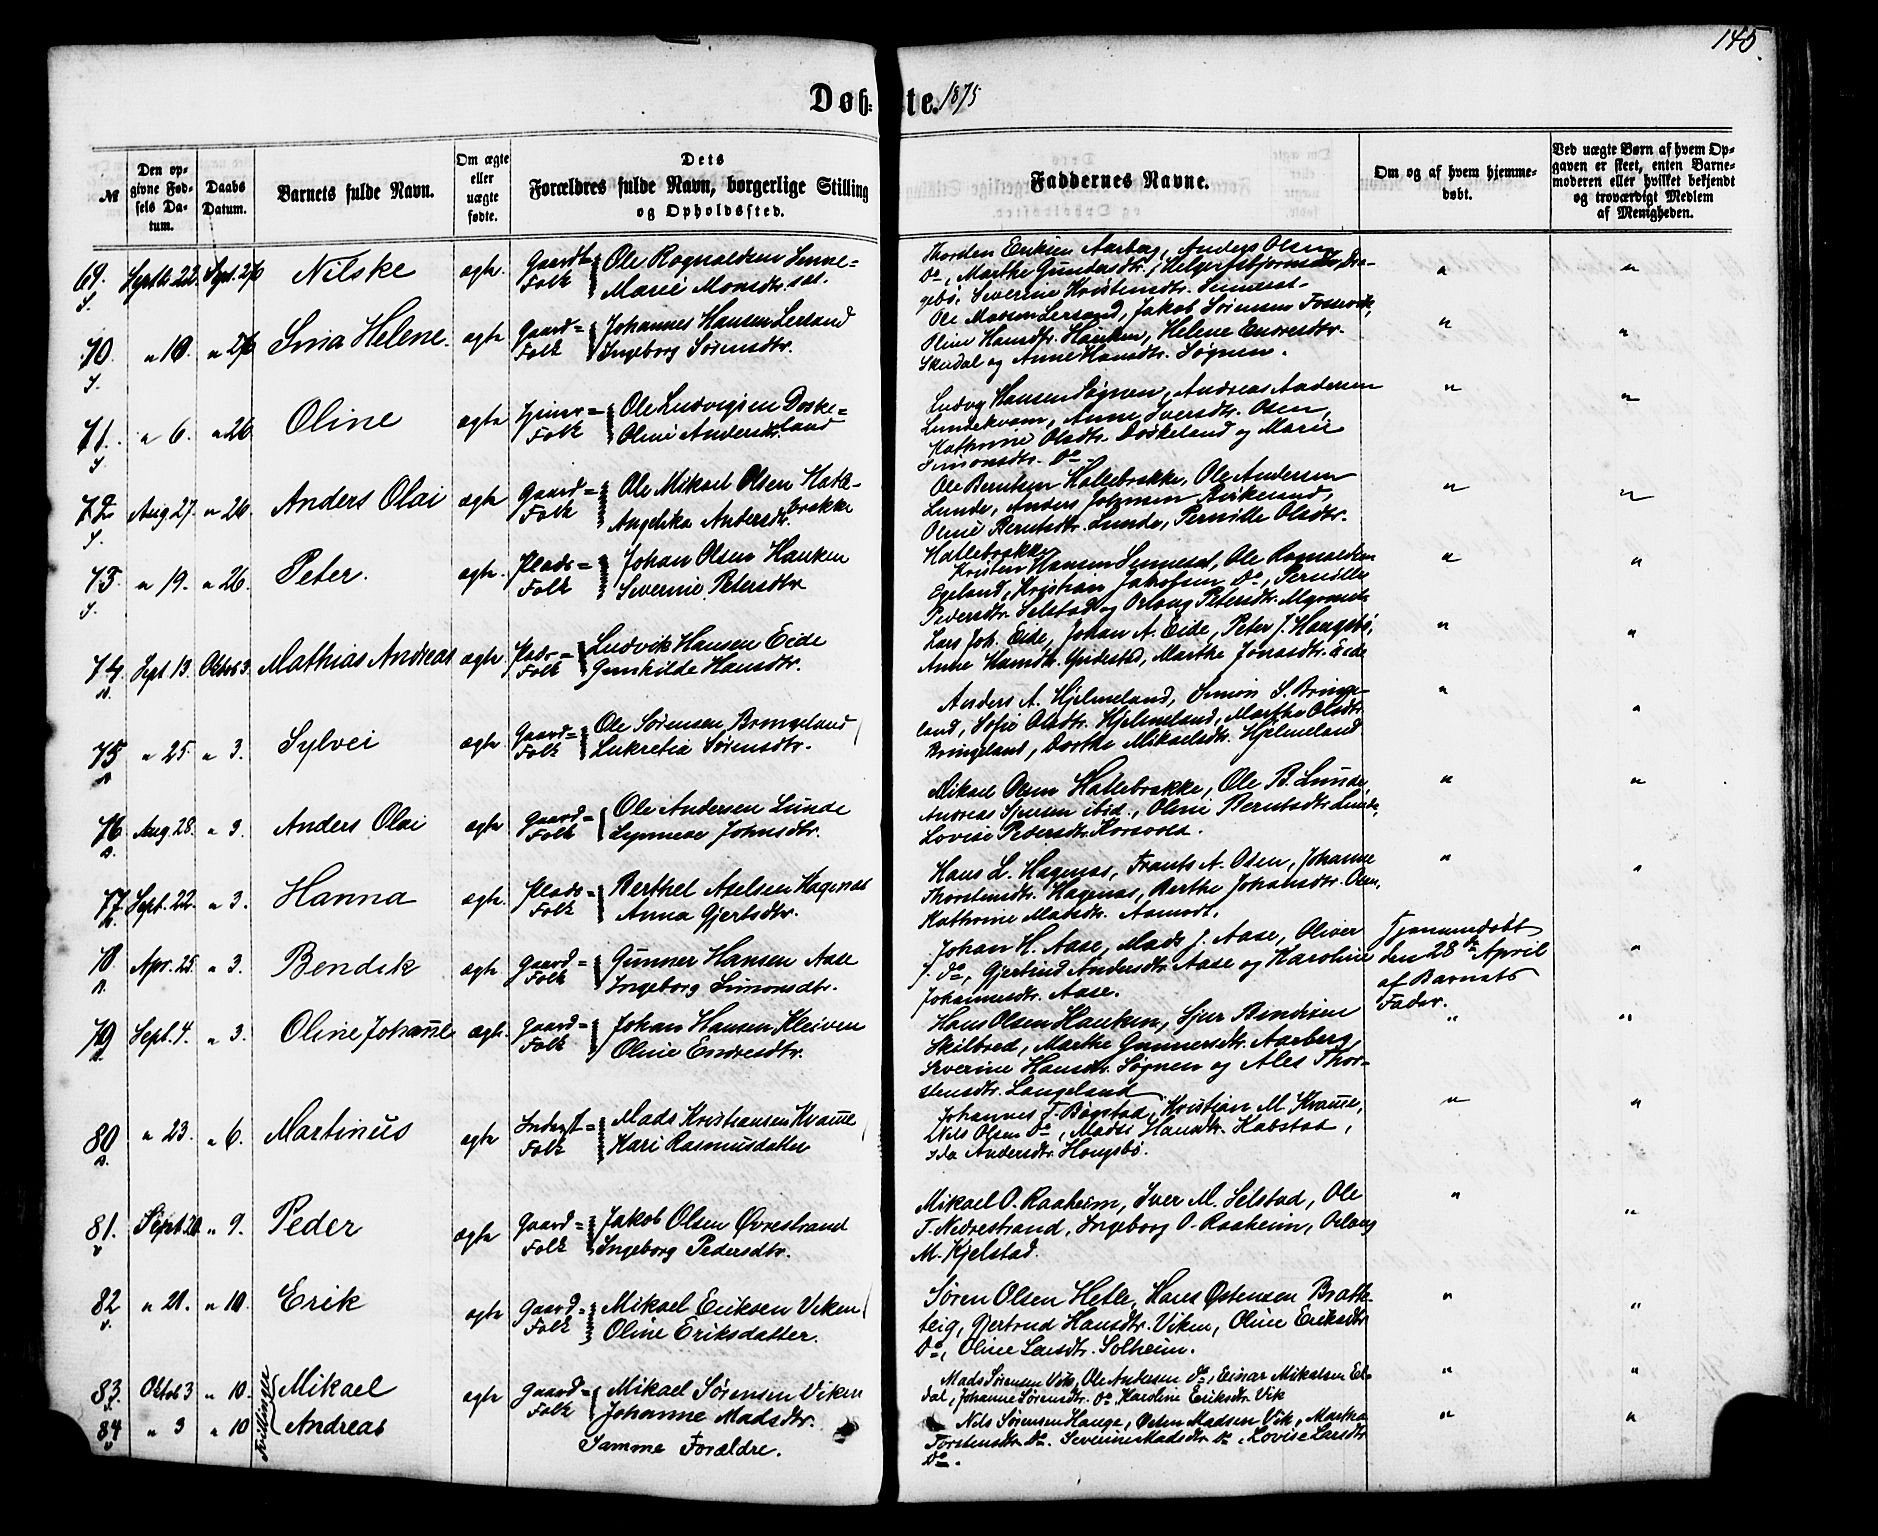 145.
Døbte. 1875
№
Den opgivne Fødsels Datum.
Daabs Datum.
Barnets fulde Navn.
Om ægte eller uægte fødte.
Dets Forældres fulde Navn, borgerlige Stilling og Opholdssted.
Faddernes Navne.
Om og af hvem hjemmedøbt.
Ved uægte Børn af hvem Opgaven er skeet, enten Barnemoderen eller hvilket bekjendt og troværdigt Medlem af Menigheden.
69. Septb. 22. Spt. 26 Nilske ægte. Gaard= Folk Ole Rognaldsen
Marie Monsdtr.
Thorsten Eriksen Aarberg, Anders Olsen
Do, Marthe Gundersdtr.,
Severine Kristensdtr.
70. " 10. " 26 Helene ægte Gaard= Folk Johannes Hansen Lersand
Ingeborg Sørensdtr.
Ole Monsen Lersand, Jakob Sørensen
Oline Hansdtr. Hauken, Helene Endresdtr.
Skudal og Anne Hansdtr. Søgnen.
71. " 6. " 26 Oline ægte Folk Ole Ludvigsen Doskeland
Oline Andersdtr.
Ludvig Hansen Søgnen, Andreas Andersen
Lundekvam, Anne Iversdtr. Osen,
Kathrine Olsdtr. Doskeland og Marie
Simonsdtr. Do.
72. Aug. 27. " 26. Anders Olai ægte Gaard= Folk Ole Mikael Olsen Hatlebrække
Angelika Andersdtr.
Ole Berntsen Hatlebrække, Ole Andersen
Lunde, Anders
Oline Berntsdtr. Lunde, Pernille Olsdtr.
Hatlebrække
73. " 19. " 26. Peter. ægte. Plads= Folk Johan Olsen Hauken
Severine Petersdtr.
Kristen Hansen Ole Rognaldsen
Egeland, Kristian Jakobsen Do, Pernille
Pedersdtr. Selstad og Orloug Petersdtr.
74. Sept. 13. Oktob. 3. Mathias Andreas ægte. Plads= Folk Ludvik Hansen Eide
Gunhilde Hansdtr.
Lars Joh. Eide, Johan A. Eide, Peter J. Hougsbø,
Anne Hansdtr. Marthe Jonasdtr. Eide
75 " 25. " 3. Sylvei ægte Gaard= Folk Ole Sørensen Bringeland
Lukretia Sørensdtr.
Anders A. Hjelmeland, Simon S. Bringeland,
Sofie Olsdtr. Hjelmeland, Marthe Olsdtr.
Bringeland, Dorthe Mikaelsdtr. Hjelmeland
76. Aug. 28. " 3. Anders Olai ægte Gaard= Folk Ole Andersen Lunde
Synneve Johnsdtr.
Mikael Olsen Hatlebrække, Ole B. Lunde,
Andreas Sjursen ibid., Oline Berntsdtr. Lunde,
Lovise Pedersdtr. Korsvold.
77. Sept. 22. " 3. Hanna ægte. Plads= Folk Berthel Axelsen Hagenæs
Anna Gjertsdtr.
Hans L. Hagenæs, Frants A. Osen, Johanne
Thorstensdtr. Hagenæs, Berthe Johansdtr. Osen,
Kathrine Madsdtr. Aamodt.
78. Apr. 25. " 3. Bendik ægte. Gaard= Folk Gunner Hansen Aase
Ingeborg Simonsdtr.
Johan H. Aase, Mads J. Aase, Oliver
J. Do, Gjertrud Andersdtr. Aase og Karoline
Johannesdtr. Aase.
Hjemmedøbt
den 28de April
af Barnets
Fader.
79. Sept. 4. " 3. Oline Johanne ægte. Gaard= Folk Johan Hansen Kleiven
Oline Endresdtr.
Hans Olsen Hauken, Sjur Bendixen
Skilbred, Marthe Gunnersdtr. Aarberg,
Severine Hansdtr. Søgnen og Ales Thorstensdtr.
Langeland
80. " 23. " 6. Martinus ægte Inderst= Folk Mads Kristiansen Kvamme
Kari Rasmusdatter
Johannes T. Bøgstad, Kristian M. Kvamme,
Nils Olsen Do, Madsi Hansdtr. Kobstad,
Ida Andersdtr. Hougsbø.
81. Sept. 20. " 9. Peder ægte Gaard= Folk Jakob Olsen Øvrestrand
Ingeborg Pedersdtr.
Mikael O. Raaheim, Iver M. Selstad, Ole
T. Nedrestrand, Ingeborg O. Raaheim, Orloug
M. Kjelstad.
82 " 21. " 10. Erik ægte Gaard= Folk Mikael Eriksen Viken
Oline Eriksdatter.
Søren Olsen Hetle, Hans Østensen Brattebeig,
Gjertrud Hansdtr. Viken, Oline Eriksdtr.
Do, Oline Larsdtr. Solheim.
83. Oktob. 3 " 10. Tvillinger Mikael ægte Gaard= Folk Mikael Sørensen Viken
Johanne Madsdtr.
Mads Sørensen Vik, Ole Andersen Do, Einar Mikalsen Eldal,
Johanne Sørensdtr. Do. Karoline Eriksdtr. Vik
84 " 3 " 10 Andreas Samme Forældre.
Nils Sørensen Hauge, Østen Madsen Vik, Martha
Torstensdtr. Do. Severine Madsdtr. Do, Lovise Larsdtr.
Do.